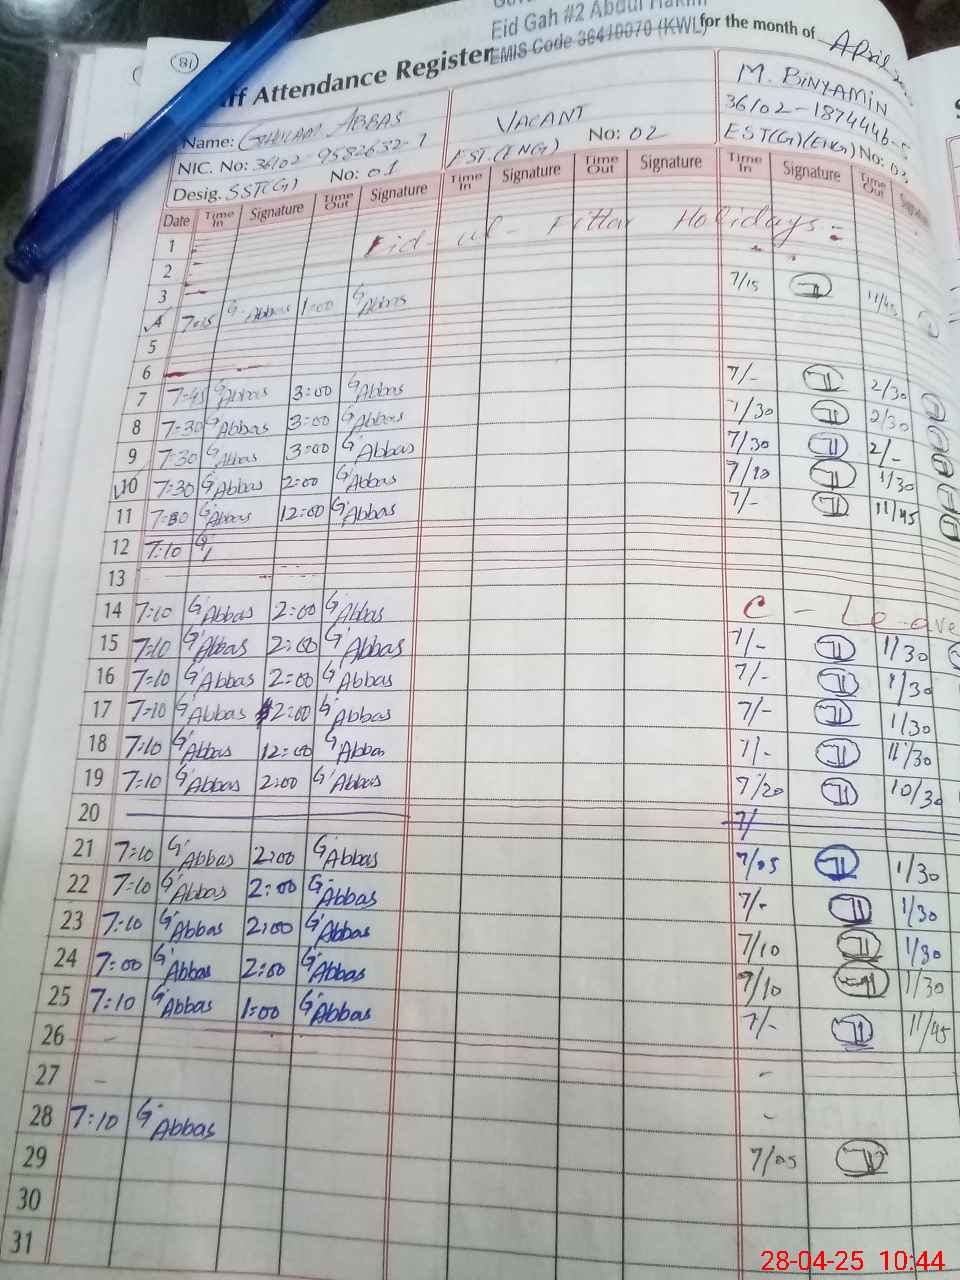 Eid Gah #2 Abdul Hakim
EMIS Code 36410070 (KWL)
for the month of April
81
Attendance Register
Name: GHULAM ABBAS
NIC. No: 36102-9582632-7
Desig. SST(G) No: 01
VACANT
EST.(ENG) No: 02
M. BINYAMIN
36102-1874446-5
EST(G)(ENG) No: 03
Date Time In Signature Time Out Signature Time In Signature Time Out Signature Time In Signature Time Out
1 Eid-ul-Fittar Holidays
2
3
4 7:15 G Abbas 1:00 G Abbas 7/15 11/45
5
6
7 7:45 G Abbas 3:00 G Abbas 7/- 2/30
8 7:30 G Abbas 3:00 G Abbas 7/30 2/30
9 7:30 G Abbas 3:00 G Abbas 7/30 2/-
10 7:30 G Abbas 2:00 G Abbas 7/10 1/30
11 7:30 G Abbas 12:00 G Abbas 7/- 11/45
12 7:10 G
13
14 7:10 G Abbas 2:00 G Abbas C - Leave
15 7:10 G Abbas 2:00 G Abbas 7/- 1/30
16 7:10 G Abbas 2:00 G Abbas 7/- 1/30
17 7:10 G Abbas 2:00 G Abbas 7/- 1/30
18 7:10 G Abbas 12:00 G Abbas 7/- 11/30
19 7:10 G Abbas 2:00 G Abbas 7/20 10/30
20 7/
21 7:10 G Abbas 2:00 G Abbas 7/05 1/30
22 7:10 G Abbas 2:00 G Abbas 7/- 1/30
23 7:10 G Abbas 2:00 G Abbas 7/10 1/30
24 7:00 G Abbas 2:00 G Abbas 7/10 1/30
25 7:10 G Abbas 1:00 G Abbas 7/- 11/45
26 -
27 - -
28 7:10 G Abbas -
29 7/05
30
31
28-04-25 10:44